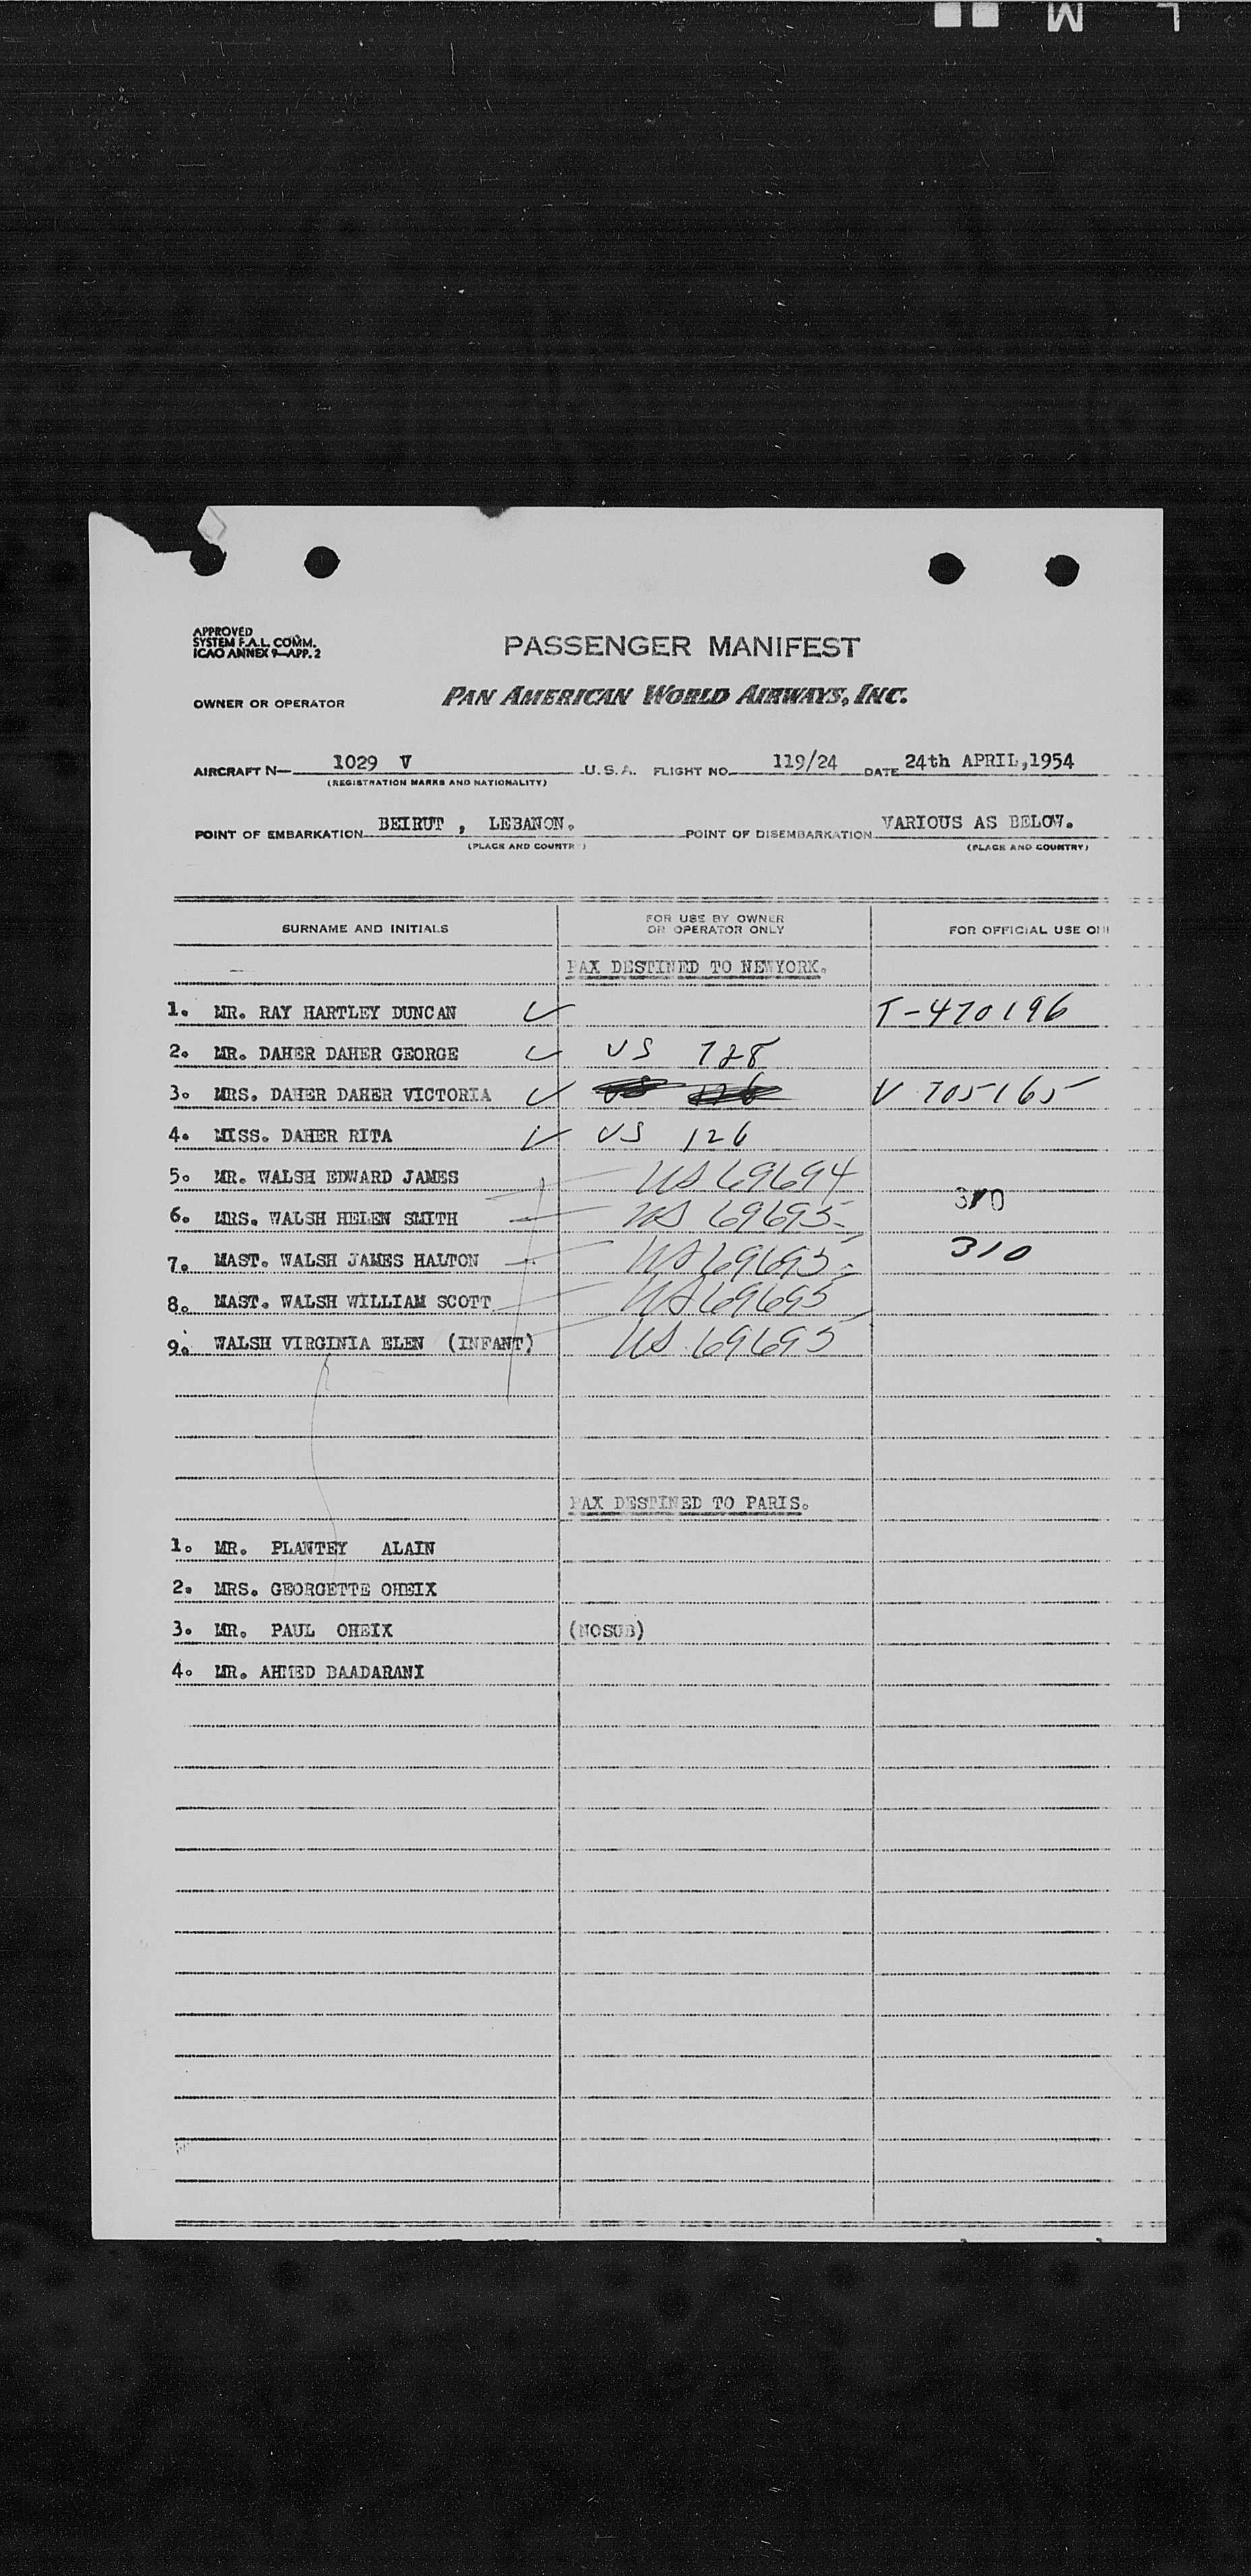 L M
APPROVED
SYSTEM F.A.L. COMM.
ICAO ANNEX 9—APP. 2
PASSENGER MANIFEST
OWNER OR OPERATOR PAN AMERICAN WORLD AIRWAYS, INC.
AIRCRAFT N— 1029 V U.S.A. FLIGHT NO. 119/24 DATE 24th APRIL,1954
(REGISTRATION MARKS AND NATIONALITY)
POINT OF EMBARKATION BEIRUT , LEBANON. POINT OF DISEMBARKATION VARIOUS AS BELOW.
(PLACE AND COUNTR ) (PLACE AND COUNTRY)
SURNAME AND INITIALS FOR USE BY OWNER OR OPERATOR ONLY FOR OFFICIAL USE ON
PAX DESTINED TO NEWYORK.
1. MR. RAY HARTLEY DUNCAN ✓ T-470196
2. MR. DAHER DAHER GEORGE ✓ US 728
3. MRS. DAHER DAHER VICTORIA ✓ V 705165
4. MISS. DAHER RITA ✓ US 126
5. MR. WALSH EDWARD JAMES US 69694
310
6. MRS. WALSH HELEN SMITH US 69695
7. MAST. WALSH JAMES HALTON US 69695 310
8. MAST. WALSH WILLIAM SCOTT US 69695
9. WALSH VIRGINIA ELEN (INFANT) US 69695
PAX DESTINED TO PARIS.
1. MR. PLANTEY ALAIN
2. MRS. GEORGETTE OHEIX
3. MR. PAUL OHEIX (NOSUB)
4. MR. AHMED BAADARANI